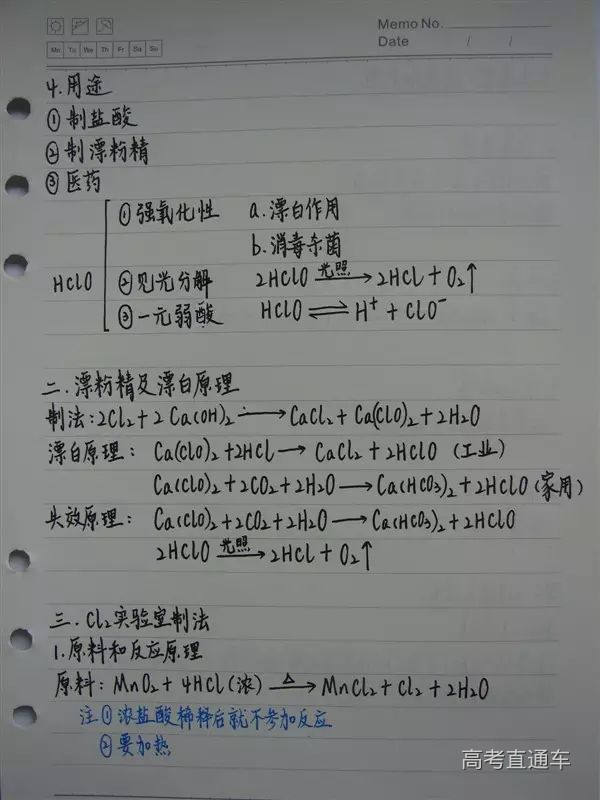 Memo No.
Mo Tu We Th Fr Sa Su
Date / /
4.用途
①制盐酸
②制漂粉精
③医药
HClO
①强氧化性 a.漂白作用
b.消毒杀菌
②见光分解 2HClO 光照→ 2HCl + O₂↑
③一元弱酸 HClO ⇌ H⁺ + ClO⁻
二.漂粉精及漂白原理
制法:2Cl₂+2Ca(OH)₂→CaCl₂+Ca(ClO)₂+2H₂O
漂白原理: Ca(ClO)₂+2HCl→CaCl₂+2HClO (工业)
Ca(ClO)₂+2CO₂+2H₂O→Ca(HCO₃)₂+2HClO(家用)
失效原理: Ca(ClO)₂+2CO₂+2H₂O→Ca(HCO₃)₂+2HClO
2HClO 光照→ 2HCl + O₂↑
三.Cl₂实验室制法
1.原料和反应原理
原料:MnO₂+4HCl(浓) △→ MnCl₂+Cl₂+2H₂O
注①浓盐酸稀释后就不参加反应
②要加热
高考直通车